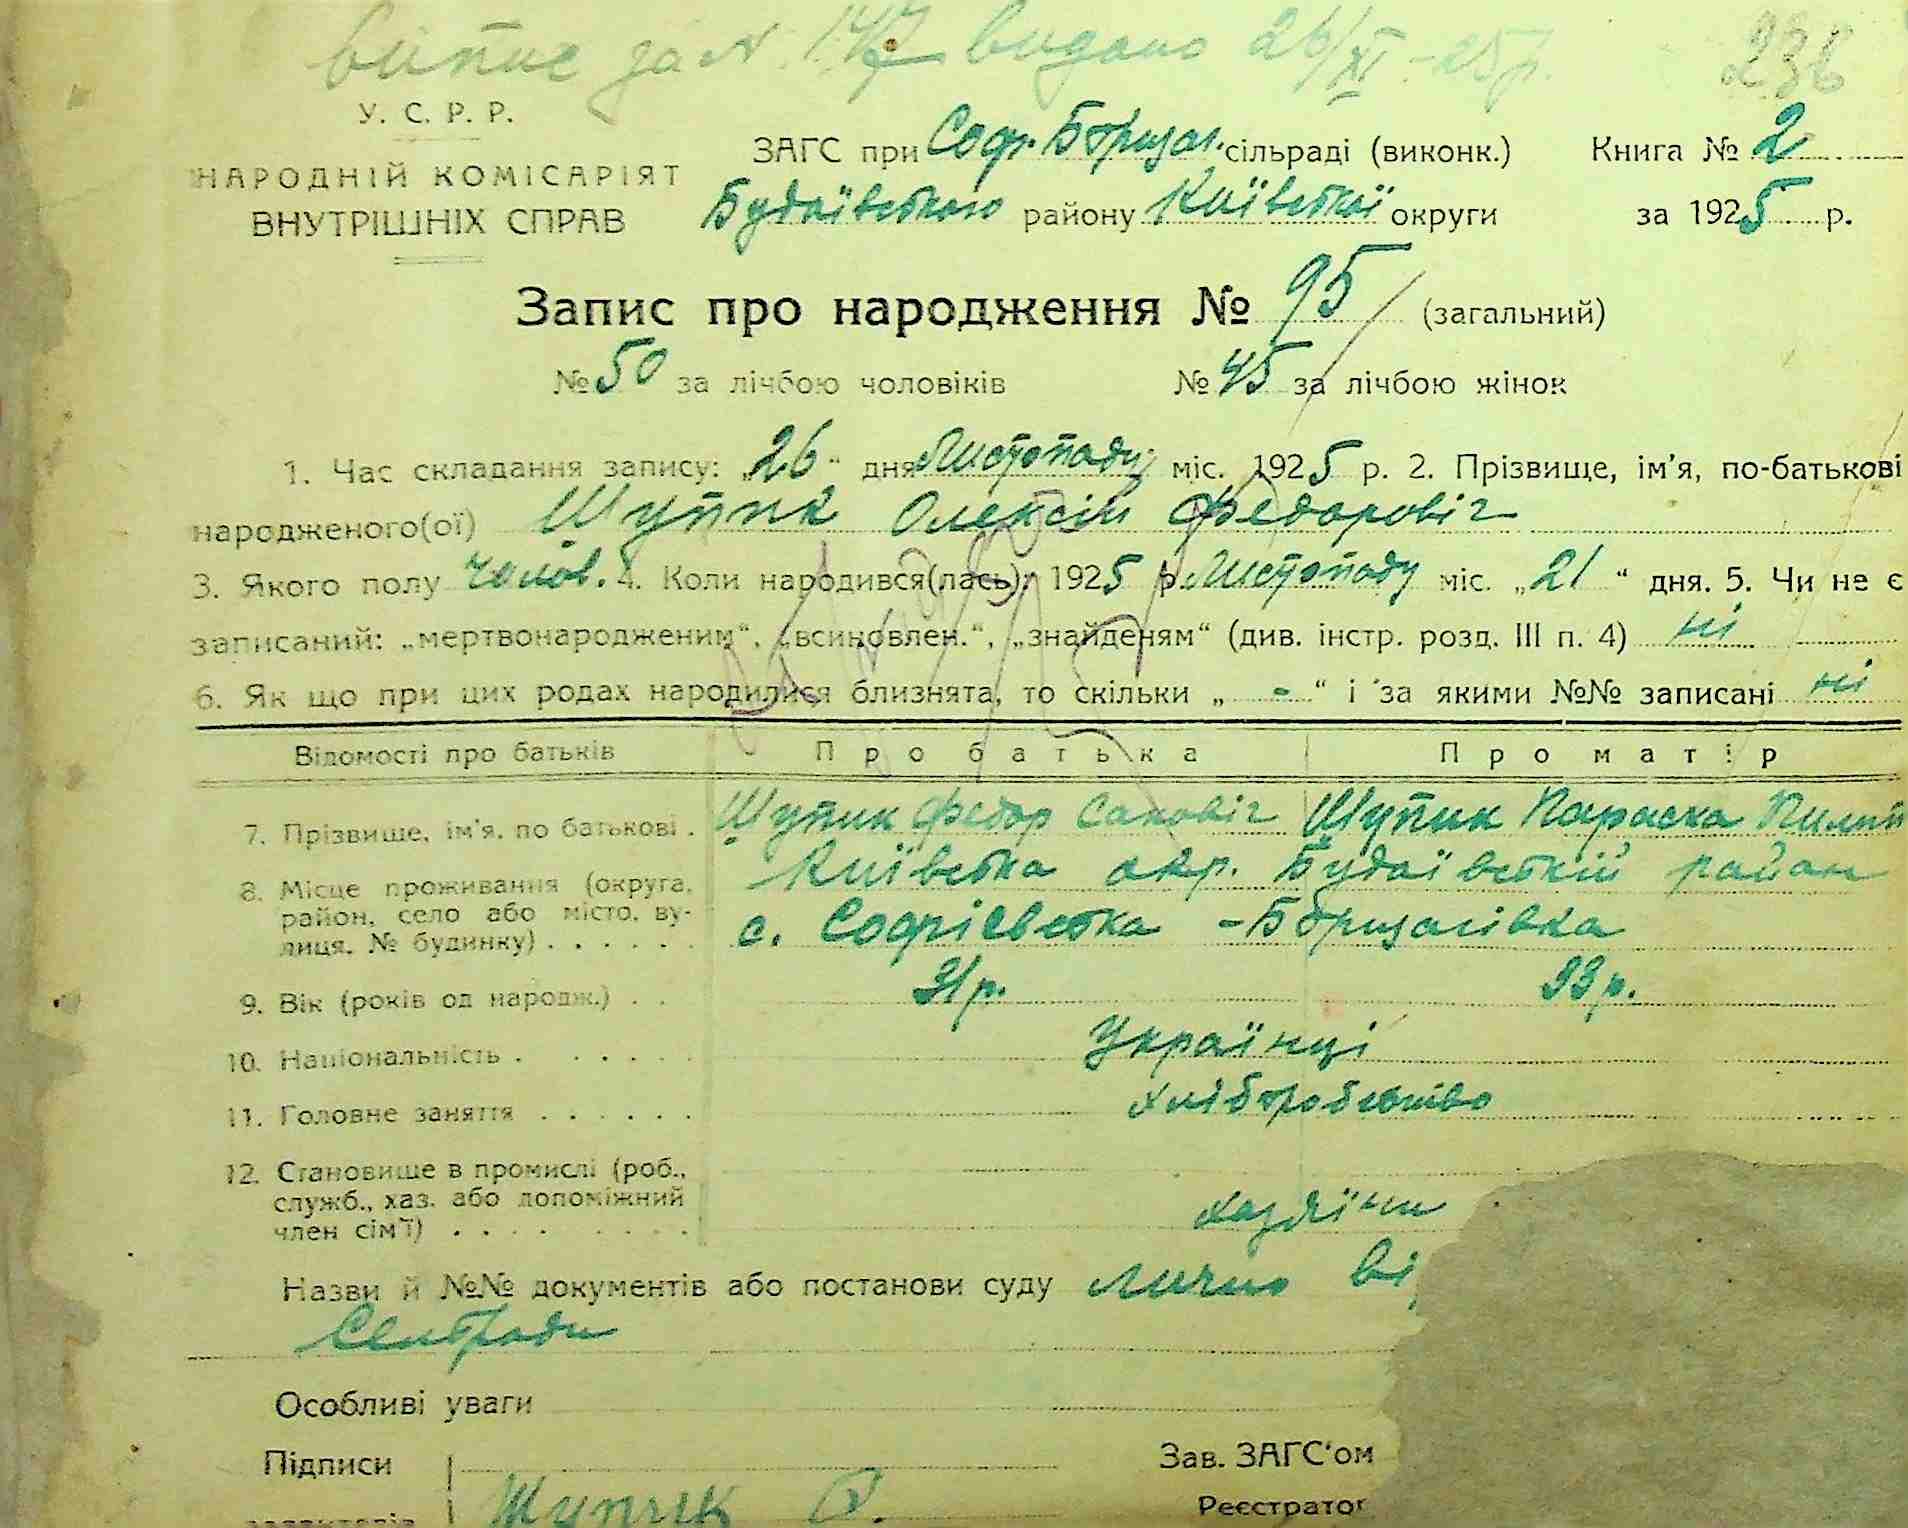 Випис за № 147 видано 26/XI-25р. 236
У. С. Р. Р.
НАРОДНІЙ КОМІСАРІЯТ
ВНУТРІШНІХ СПРАВ
ЗАГС при Соф. Борщаг. сільраді (виконк.) Книга № 2
Будаївського району Київської округи за 1925 р.
Запис про народження № 95 (загальний)
№ 50 за лічбою чоловіків № 45 за лічбою жінок
1. Час складання запису: „26“ дня Листопаду міс. 1925 р. 2. Прізвище, ім'я, по-батькові
народженого(ої) Щупик Олексій Федоровіч
3. Якого полу чолов. 4. Коли народився(лась): 1925 р. Листопаду міс. „21“ дня. 5. Чи не є
записаний: „мертвонародженим“, „всиновлен.“, „знайденям“ (див. інстр. розд. III п. 4) ні
6. Як що при цих родах народилися близнята, то скільки „-“ і за якими №№ записані ні
Відомості про батьків Про батька Про матір
7. Прізвище, ім'я, по батькові . Щупик Федор Савовіч Щупик Параска Пилип
8. Місце проживання (округа, Київська окр. Будаївській район
район, село або місто, ву-
лиця, № будинку) . . . . . . с. Софіївська - Борщагівка
9. Вік (років од народж.) . . 31 р. 33 р.
10. Національність . . . . . . Українці
11. Головне заняття . . . . . . хліборобство
12. Становище в промислі (роб.,
служб., хаз. або допоміжний
член сім'ї) . . . . . . . . хазяїни
Назви й №№ документів або постанови суду Лично ві
Сельради
Особливі уваги
Підписи Зав. ЗАГС'ом
заявителів Щупик Реєстратор